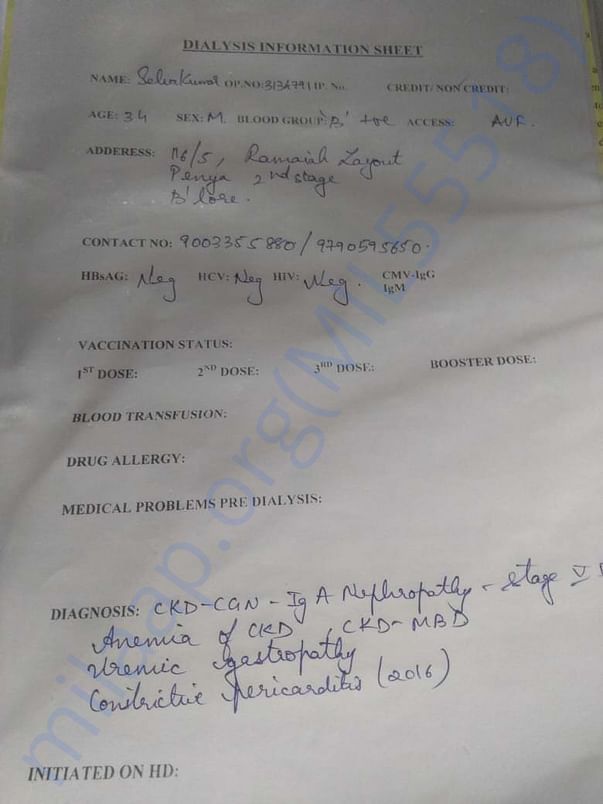 DIALYSIS INFORMATION SHEET
NAME: Selvakumar OP.NO:3134791 IP. No. CREDIT/ NON CREDIT:
AGE: 34 SEX: M. BLOOD GROUP: 'B' +ve ACCESS: AVF.
ADDERESS: 116/5, Ramaiah Layout
Penya 2nd stage
B'lore.
CONTACT NO: 9003355880 / 9790595650.
HBsAG: Neg HCV: Neg HIV: Neg. CMV-IgG
IgM
VACCINATION STATUS:
1ST DOSE: 2ND DOSE: 3RD DOSE: BOOSTER DOSE:
BLOOD TRANSFUSION:
DRUG ALLERGY:
MEDICAL PROBLEMS PRE DIALYSIS:
DIAGNOSIS: CKD-CGN - Ig A Nephropathy - stage V
Anemia of CKD, CKD-MBD
Uremic gastropathy
Constrictive pericarditis (2016)
INITIATED ON HD:
milaap.org(MIL55518)